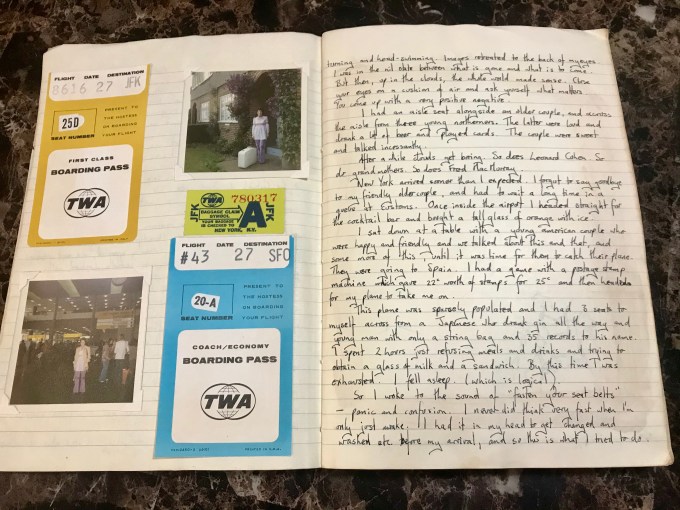 FLIGHT DATE DESTINATION
8616 27 JFK
25D
SEAT NUMBER
PRESENT TO
THE HOSTESS
ON BOARDING
YOUR FLIGHT
FIRST CLASS
BOARDING PASS
TWA
780317
JFK
TWA
BAGGAGE CLAIM
SYMBOL
YOUR BAGGAGE
IS CHECKED TO
NEW YORK, N.Y.
A
JFK
FLIGHT DATE DESTINATION
#43 27 SFO
20-A
SEAT NUMBER
PRESENT TO
THE HOSTESS
ON BOARDING
YOUR FLIGHT
COACH/ECONOMY
BOARDING PASS
TWA
PRINTED IN U.S.A.
turning and head-swimming. Images retreated to the back of my eyes
I was in the nil state between what is gone and what is to come.
But then, up in the clouds, the whole world made sense. Close
your eyes on a cushion of air and ask yourself what matters
You come up with a very positive negative.
I had an aisle seat alongside an older couple, and across
the aisle from three young northerners. The latter were loud and
drank a lot of beer and played cards. The couple were sweet
and talked incessantly.
After a while clouds get boring. So does Leonard Cohen. So
do grandmothers. So does Fred MacMurray.
New York arrived sooner than I expected. I forgot to say goodbye
to my friendly older couple, and had to wait a long time in a
queue at Customs. Once inside the airport I headed straight for
the cocktail bar and bought a tall glass of orange with ice.
I sat down at a table with a young american couple who
were happy and friendly and we talked about this and that, and
some more of this until it was time for them to catch their plane.
They were going to Spain. I had a game with a postage stamp
machine which gave 22¢ worth of stamps for 25¢ and then headed
for my plane to take me on.
This plane was sparsely populated and I had 3 seats to
myself across from a Japanese who drank gin all the way and
young man with only a string bag and 35 records to his name.
I spent 2 hours just refusing meals and drinks and trying to
obtain a glass of milk and a sandwich. By this time I was
exhausted. I fell asleep. (which is logical).
So I woke to the sound of "fasten your seat belts"
- panic and confusion. I never did think very fast when I'm
only just awake. I had it in my head to get changed and
washed etc before my arrival, and so this is what I tried to do.